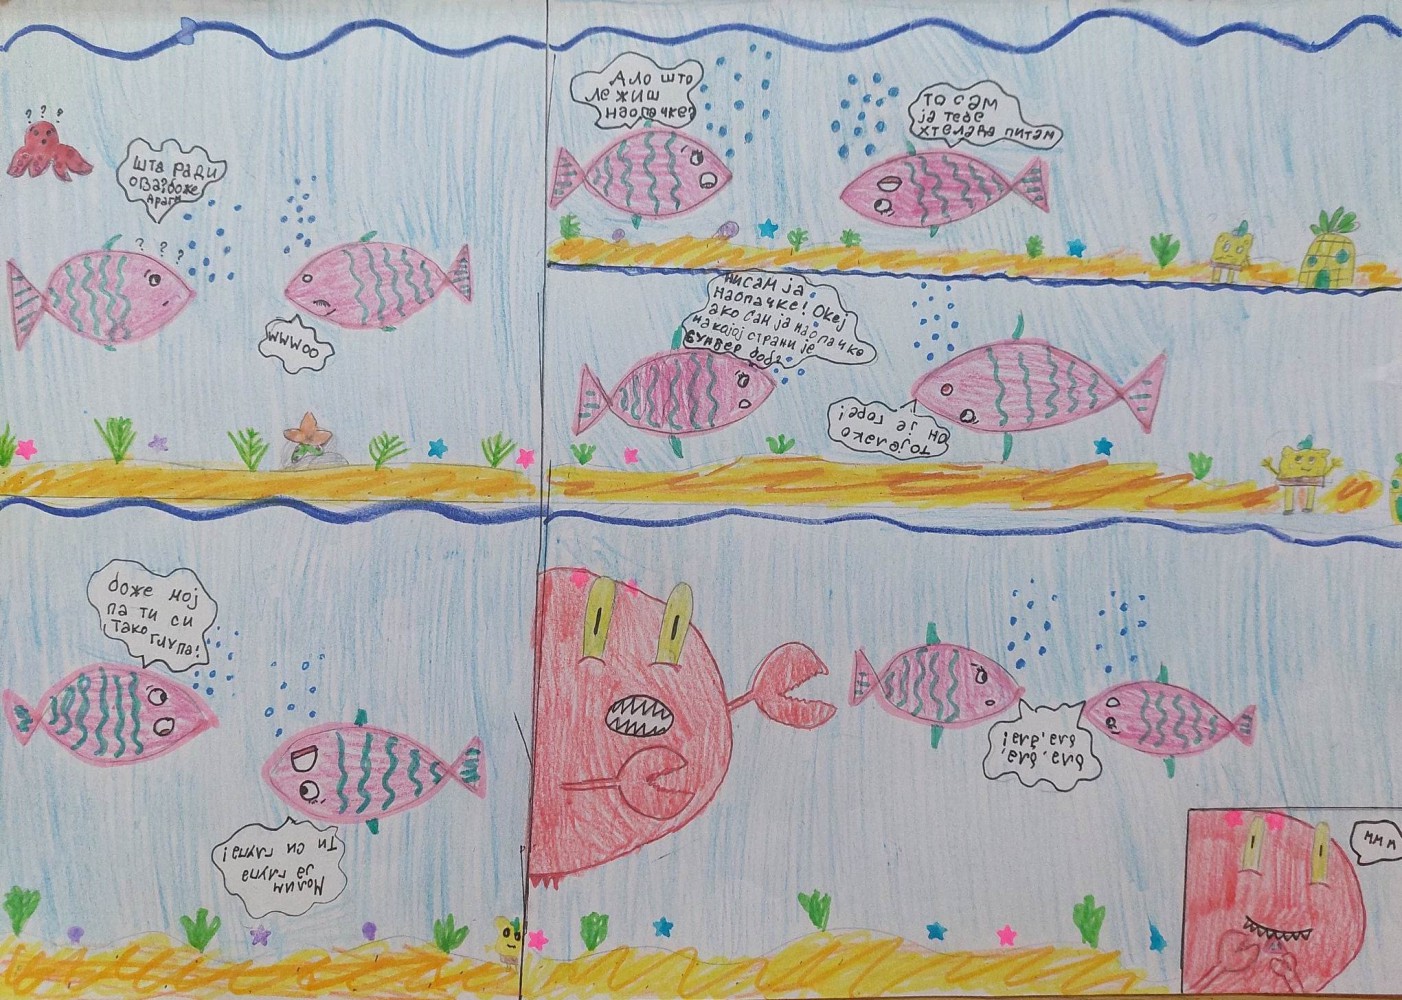 ? ? ?
шта ради
ова? боже
драги
? ? ?
wwwoo
Ало што
лежиш
наопачке?
то сам
ја тебе
хтела да питам
нисам ја
наопачке! Океј
ако сам ја наопачке
на којој страни је
сунђер боб?
па он је горе!
боже мој
па ти си
тако глупа!
Молим
ја глупа
ти си глупа!
бла, бла,
бла, бла!
ммм